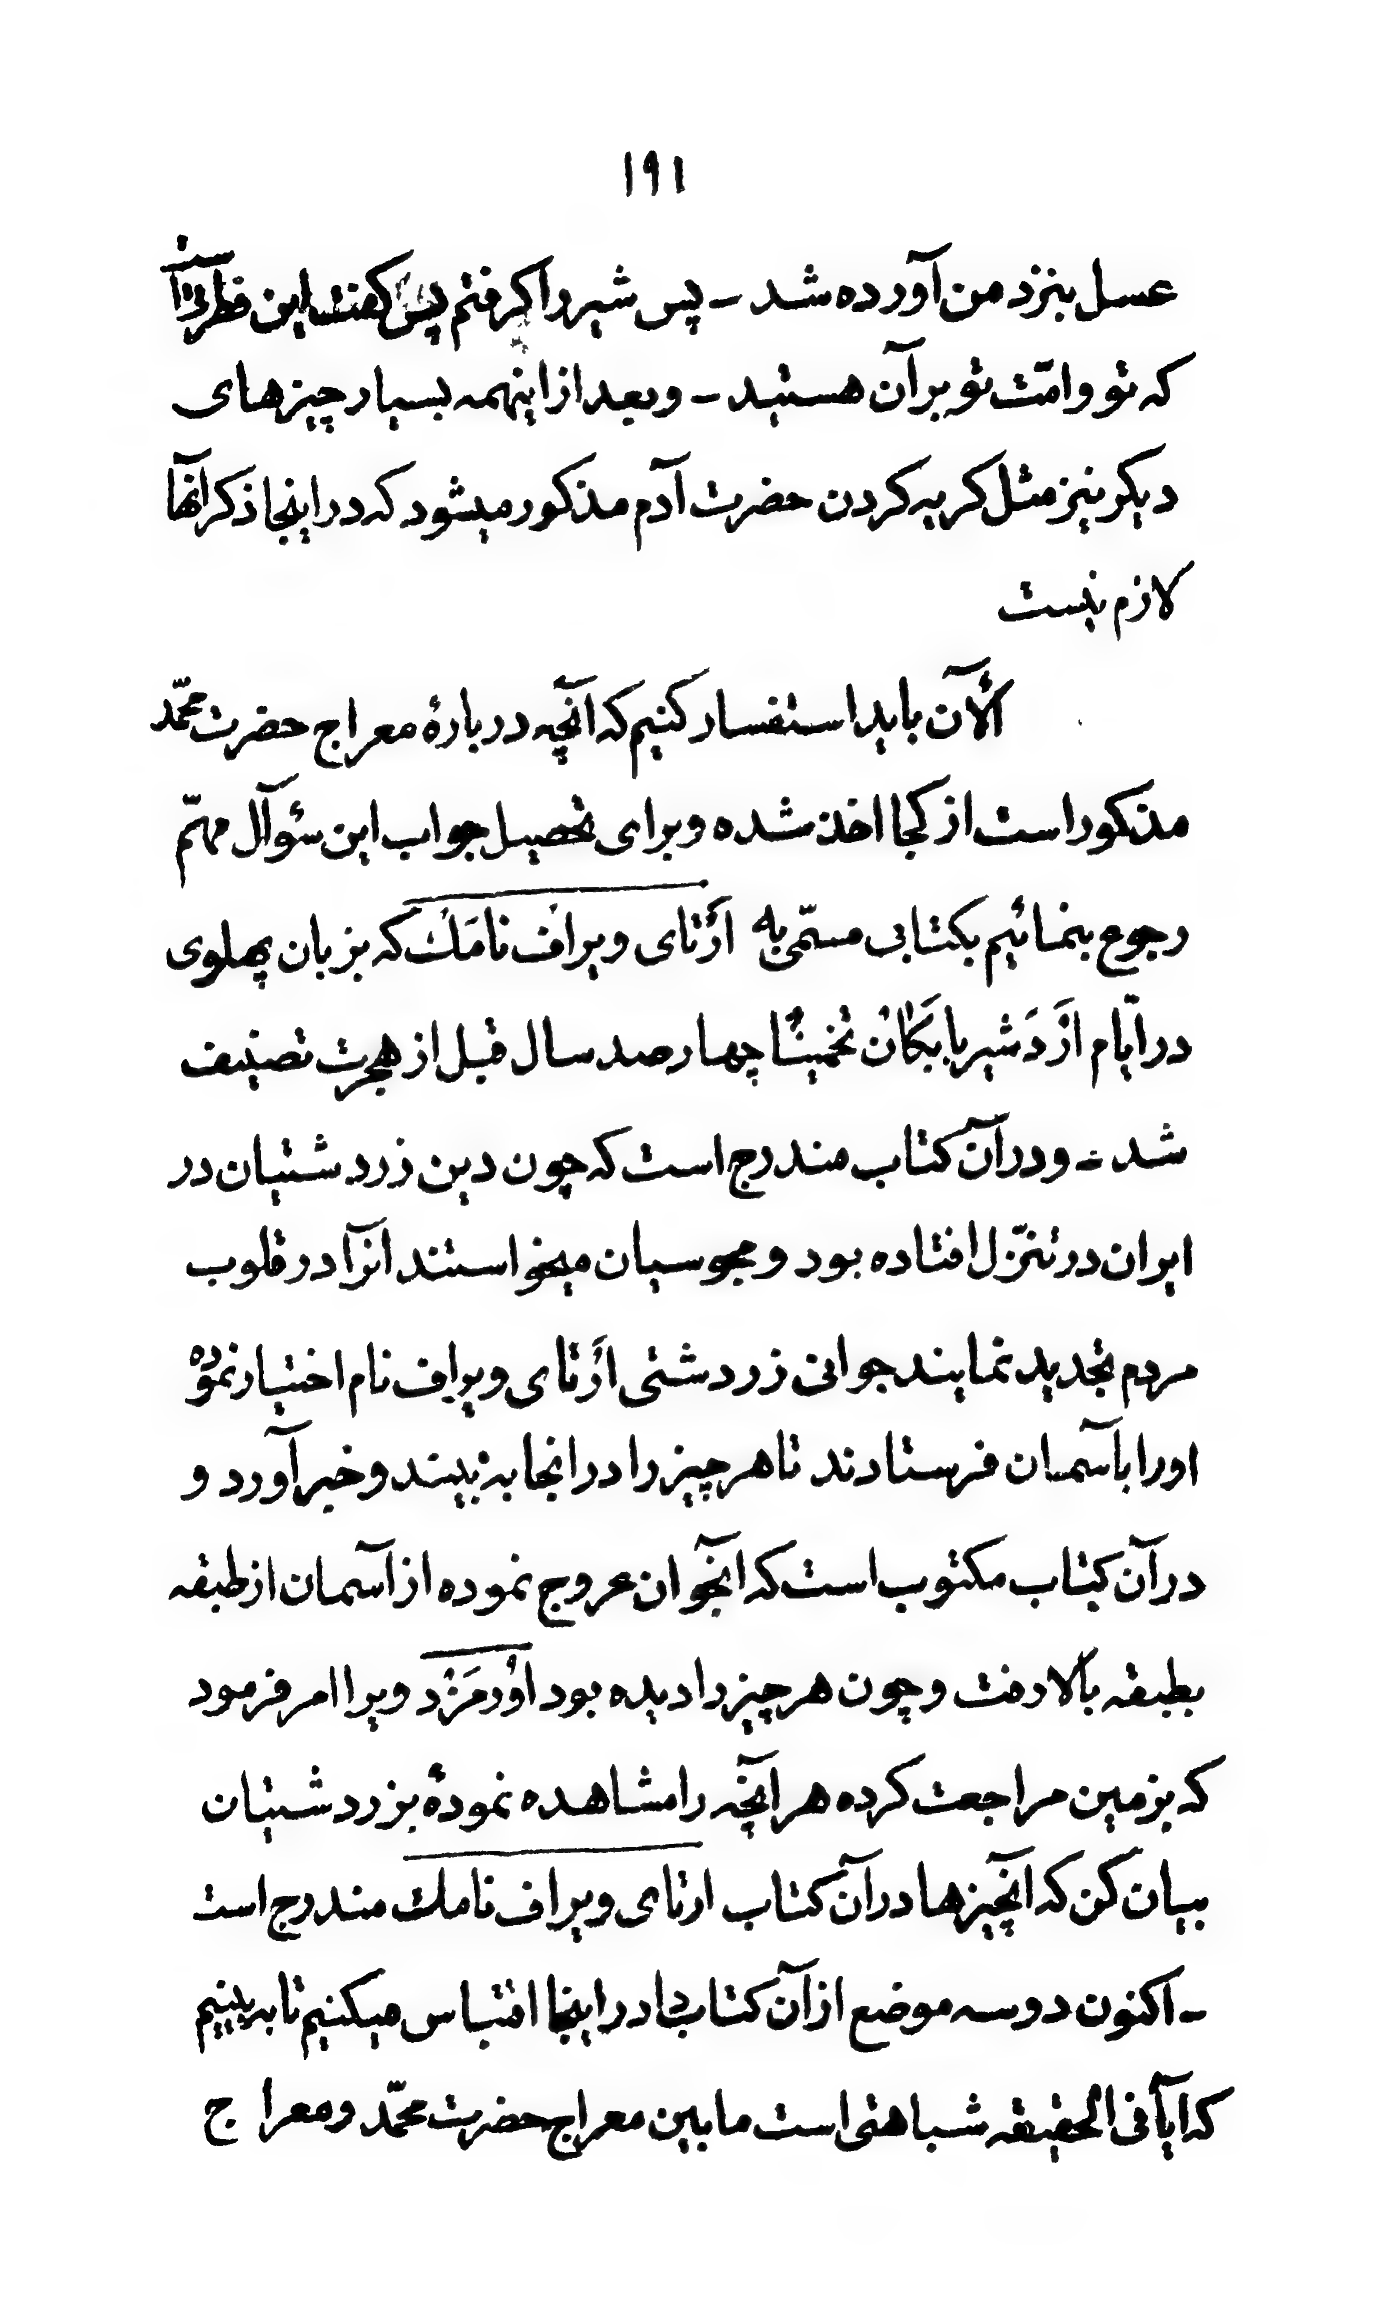 ۱۹۱
عسل بنزد من آورده شد - پس شیر را گرفتم پس گفت این فطرتیست
که تو و امّت تو بر آن هستید - و بعد از اینهمه بسیار چیزهای
دیگر نیز مثل گریه کردن حضرت آدم مذکور میشود که در اینجا ذکر آنها
لازم نیست
ألآن باید استفسار کنیم که آنچه دربارۀ معراج حضرت محمّد
مذکور است از کجا اخذ شده و برای تحصیل جواب این سؤآل مهمّ
رجوع بنمائیم بکتابی مسمّی به ارْتای ویراف نامَك که بزبان پهلوی
در ایّام ارْدَشیر بابَکان تخمینًا چهارصد سال قبل از هجرت تصنیف
شد - و در آن کتاب مندرج است که چون دین زردشتیان در
ایران در تنزّل افتاده بود و مجوسیان میخواستند آنرا در قلوب
مردم تجدید نمایند جوانی زردشتی ارْتای ویراف نام اختیار نموده
اورا بآسمان فرستادند تا هر چیز را در آنجا به‌بیند و خبر آورد و
در آن کتاب مکتوب است که آنجوان عروج نموده از آسمان از طبقه
بطبقه بالا رفت و چون هر چیز را دیده بود اوُرمَزْد ویرا امر فرمود
که بزمین مراجعت کرده هر آنچه را مشاهده نمودۀ بزردشتیان
بیان کن که آنچیزها در آن کتاب ارتای ویراف نامك مندرج است
- اکنون دو سه موضع از آن کتاب را در اینجا اقتباس میکنیم تا به بینیم
که آیا فی الحقیقه شباهتی است مابین معراج حضرت محمّد و معراج